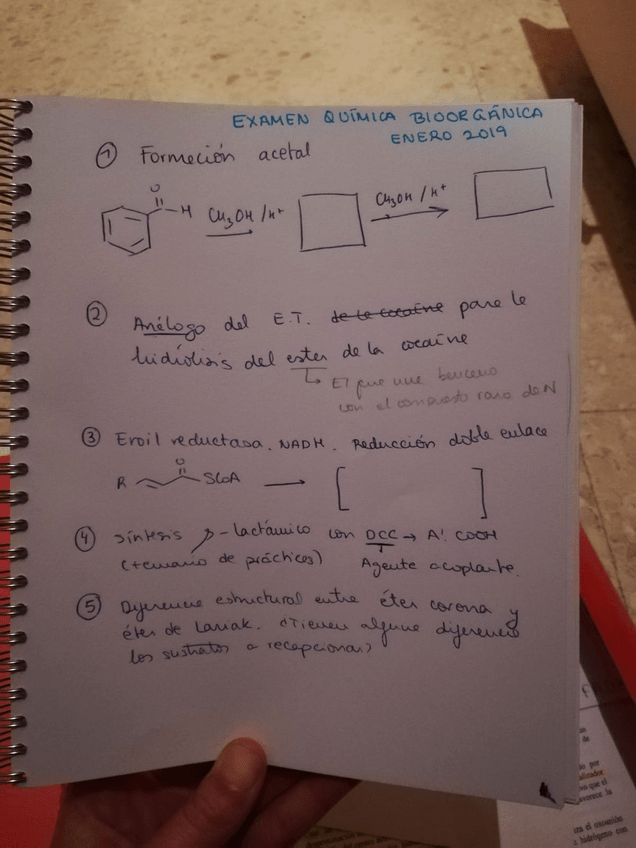 EXAMEN QUÍMICA BIOORGÁNICA
ENERO 2019
① Formación acetal
O
H
CH3OH/H+
CH3OH/H+
② Análogo del E.T. de la cocaína para la
hidrólisis del ester de la cocaína
↳ El que une benceno
con el compuesto raro de N
③ Enoil reductasa. NADH. Reducción doble enlace
O
R SCoA
④ síntesis β-lactámico con DCC → A'. COOH
(temario de prácticas) Agente acoplante.
⑤ Diferencia estructural entre éter corona y
éter de Lariak. ¿Tienen alguna diferencia
los sustratos a recepcionar?